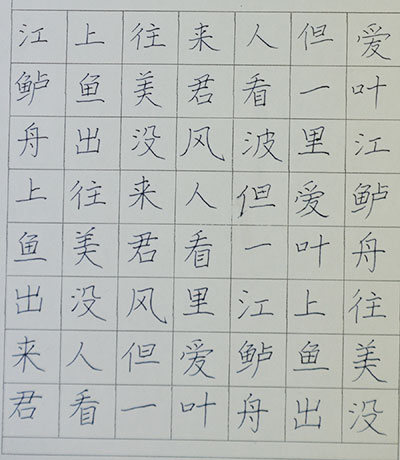 江上往来人但爱
鲈鱼美君看一叶
舟出没风波里江
上往来人但爱鲈
鱼美君看一叶舟
出没风里江上往
来人但爱鲈鱼美
君看一叶舟出没